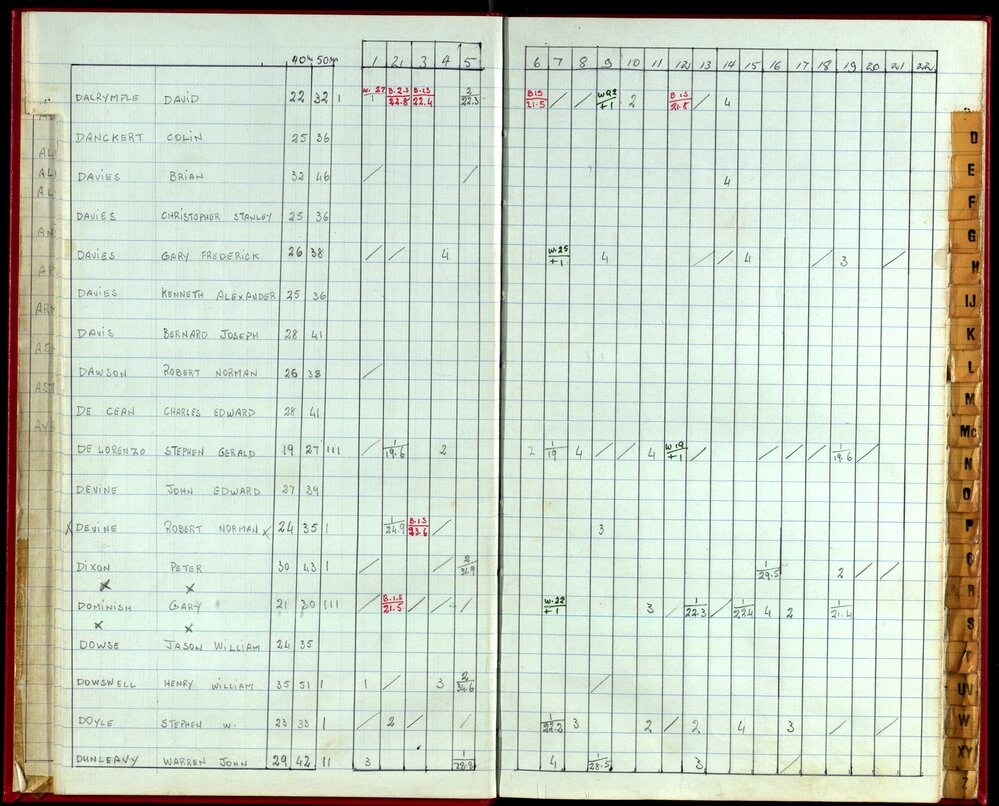 40m 50m 1 2 3 4 5 6 7 8 9 10 11 12 13 14 15 16 17 18 19 20 21 22
DALRYMPLE DAVID 22 32 1 W.27/1 B.2.S/22.8 B.1.S/22.4 2/22.3 B1S/21.5 / / W22/+1 2 B.1S/21.8 / 4
DANCKERT COLIN 25 36
DAVIES BRIAN 32 46 / / 4
DAVIES CHRISTOPHER STANLEY 25 36
DAVIES GARY FREDERICK 26 38 / / 4 W.25/+1 4 / / 4 / 3 /
DAVIES KENNETH ALEXANDER 25 36
DAVIS BERNARD JOSEPH 28 41
DAWSON ROBERT NORMAN 26 38 /
DE CEAN CHARLES EDWARD 28 41
DE LORENZO STEPHEN GERALD 19 27 111 / 1/19.6 2 2 1/19 4 / / 4 W.19/+1 / / / / 1/19.6 /
DEVINE JOHN EDWARD 27 39
X DEVINE ROBERT NORMAN X 24 35 1 1/24.9 B.1S/23.6 / 3
DIXON PETER 30 43 1 / / 2/31.9 1/29.5 2 / /
X X
DOMINISH GARY 21 30 111 / B.1.S/21.5 / / / W.22/+1 3 1/22.3 / 1/22.4 4 2 1/21.4
X X
DOWSE JASON WILLIAM 24 35
DOWSWELL HENRY WILLIAM 35 51 1 1 / 3 2/34.6 /
DOYLE STEPHEN W. 23 33 1 / 2 / / 1/22.2 3 2 / 2 4 3 / /
DUNLEAVY WARREN JOHN 29 42 11 3 1/28.8 4 1/28.5 3 /
AL
AL
AL
AN
AR
ARM
AS
AST
D
E
F
G
H
IJ
K
L
M
Mc
N
O
P
Q
R
S
T
UV
W
XY
Z